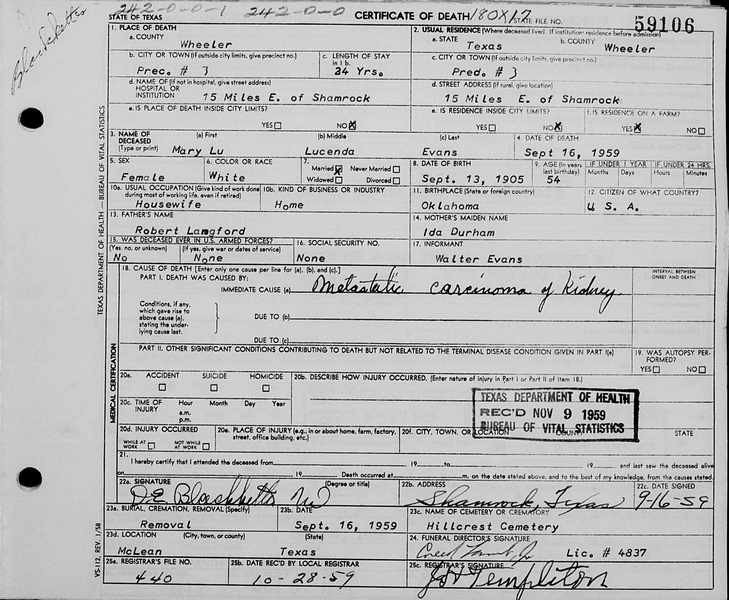 242-0-0-1 242-0-0 CERTIFICATE OF DEATH 180X17 STATE FILE NO. 59106
STATE OF TEXAS
1. PLACE OF DEATH
2. USUAL RESIDENCE (Where deceased lived. If institution: residence before admission)
a. COUNTY
Wheeler
a. STATE
Texas
b. COUNTY
Wheeler
b. CITY OR TOWN (If outside city limits, give precinct no.)
Prec. # 3
c. LENGTH OF STAY in 1 b.
34 Yrs.
c. CITY OR TOWN (If outside city limits, give precinct no.)
Pred. # 3
d. NAME OF (If not in hospital, give street address) HOSPITAL OR INSTITUTION
15 Miles E. of Shamrock
d. STREET ADDRESS (If rural, give location)
15 Miles E. of Shamrock
e. IS PLACE OF DEATH INSIDE CITY LIMITS?
YES NO X
e. IS RESIDENCE INSIDE CITY LIMITS?
YES NO X
f. IS RESIDENCE ON A FARM?
YES X NO
3. NAME OF DECEASED (Type or print)
(a) First
Mary Lu
(b) Middle
Lucenda
(c) Last
Evans
4. DATE OF DEATH
Sept 16, 1959
5. SEX
Female
6. COLOR OR RACE
White
7. Married X Never Married
Widowed Divorced
8. DATE OF BIRTH
Sept. 13, 1905
9. AGE (In years last birthday)
54
IF UNDER 1 YEAR
Months Days
IF UNDER 24 HRS.
Hours Minutes
10a. USUAL OCCUPATION (Give kind of work done during most of working life, even if retired)
Housewife
10b. KIND OF BUSINESS OR INDUSTRY
Home
11. BIRTHPLACE (State or foreign country)
Oklahoma
12. CITIZEN OF WHAT COUNTRY?
U. S. A.
13. FATHER'S NAME
Robert Langford
14. MOTHER'S MAIDEN NAME
Ida Durham
15. WAS DECEASED EVER IN U.S. ARMED FORCES?
(Yes, no, or unknown) (If yes, give war or dates of service)
No None
16. SOCIAL SECURITY NO.
None
17. INFORMANT
Walter Evans
18. CAUSE OF DEATH [Enter only one cause per line for (a), (b), and (c).]
INTERVAL BETWEEN ONSET AND DEATH
PART I. DEATH WAS CAUSED BY:
IMMEDIATE CAUSE (a) Metastatic carcinoma of Kidney
Conditions, if any, which gave rise to above cause (a), stating the underlying cause last.
DUE TO (b)
DUE TO (c)
PART II. OTHER SIGNIFICANT CONDITIONS CONTRIBUTING TO DEATH BUT NOT RELATED TO THE TERMINAL DISEASE CONDITION GIVEN IN PART I(a)
19. WAS AUTOPSY PERFORMED?
YES NO
20a. ACCIDENT SUICIDE HOMICIDE
20b. DESCRIBE HOW INJURY OCCURRED. (Enter nature of injury in Part I or Part II of item 18.)
20c. TIME OF INJURY
Hour Month Day Year
a.m.
p.m.
TEXAS DEPARTMENT OF HEALTH
REC'D NOV 9 1959
BUREAU OF VITAL STATISTICS
20d. INJURY OCCURRED
WHILE AT WORK NOT WHILE AT WORK
20e. PLACE OF INJURY (e.g., in or about home, farm, factory, street, office building, etc.)
20f. CITY, TOWN, OR LOCATION COUNTY STATE
21.
I hereby certify that I attended the deceased from 19 to 19 and last saw the deceased alive
on 19 Death occurred at m. on the date stated above, and to the best of my knowledge, from the causes stated.
22a. SIGNATURE (Degree or title)
22b. ADDRESS
Shamrock, Texas
22c. DATE SIGNED
9-16-59
23a. BURIAL, CREMATION, REMOVAL (Specify)
Removal
23b. DATE
Sept. 16, 1959
23c. NAME OF CEMETERY OR CREMATORY
Hillcrest Cemetery
23d. LOCATION (City, town, or county) (State)
McLean Texas
24. FUNERAL DIRECTOR'S SIGNATURE
Lic. # 4837
25a. REGISTRAR'S FILE NO.
440
25b. DATE REC'D BY LOCAL REGISTRAR
10-28-59
25c. REGISTRAR'S SIGNATURE
Templeton
TEXAS DEPARTMENT OF HEALTH—BUREAU OF VITAL STATISTICS
MEDICAL CERTIFICATION
VS-112, REV. 1/58